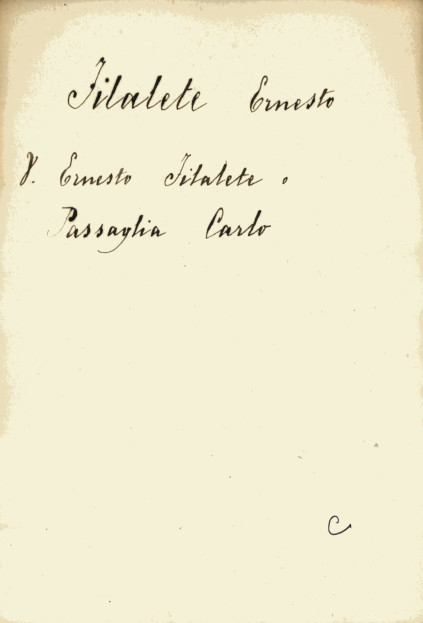 Filalete Ernesto
V. Ernesto Filalete o
Passaglia Carlo
C